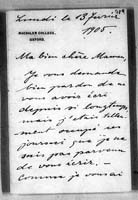 Lundi le 13 Février
1905.
MAGDALEN COLLEGE,
OXFORD.
Ma bien chère Maman
Je vous demande
bien pardon de ne
vous avoir écrit
depuis si longtemps
mais j'étais telle-
ment occupé ces
jours ci que je ne
suis pas parvenu
de vous écrire. -
Comme je vous ai